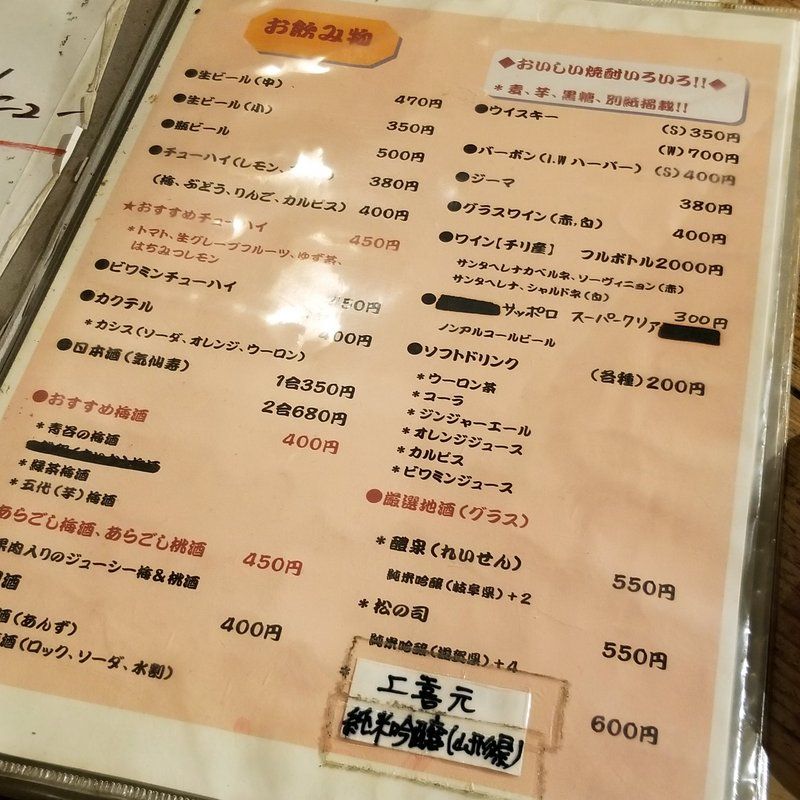 お飲み物
●生ビール(中) 470円
●生ビール(小) 350円
●瓶ビール 500円
●チューハイ(レモン、 380円
(梅、ぶどう、りんご、カルピス) 400円
★おすすめチューハイ 450円
*トマト、生グレープフルーツ、ゆず茶、
はちみつレモン
●ビワミンチューハイ 450円
●カクテル 400円
*カシス(ソーダ、オレンジ、ウーロン)
●日本酒(気仙寿) 1合350円
2合680円
●おすすめ梅酒 400円
*青谷の梅酒
*緑茶梅酒
*五代(芋)梅酒
あらごし梅酒、あらごし桃酒 450円
果肉入りのジューシー梅&桃酒
酒 400円
酒(あんず)
酒(ロック、ソーダ、水割)
◆おいしい焼酎いろいろ!!◆
*麦、芋、黒糖、別紙掲載!!
●ウイスキー (S)350円
(W)700円
●バーボン(I.Wハーパー) (S)400円
●ジーマ 380円
●グラスワイン(赤,白) 400円
●ワイン[チリ産] フルボトル2000円
サンタヘレナカベルネ、ソーヴィニョン(赤)
サンタヘレナ、シャルドネ(白)
● サッポロ スーパークリア 300円
ノンアルコールビール
●ソフトドリンク (各種)200円
*ウーロン茶
*コーラ
*ジンジャーエール
*オレンジジュース
*カルピス
*ビワミンジュース
●厳選地酒(グラス)
*醴泉(れいせん) 550円
純米吟醸(岐阜県)+2
*松の司 550円
純米吟醸(滋賀県)+4
* 上喜元 600円
純米吟醸(山形県)